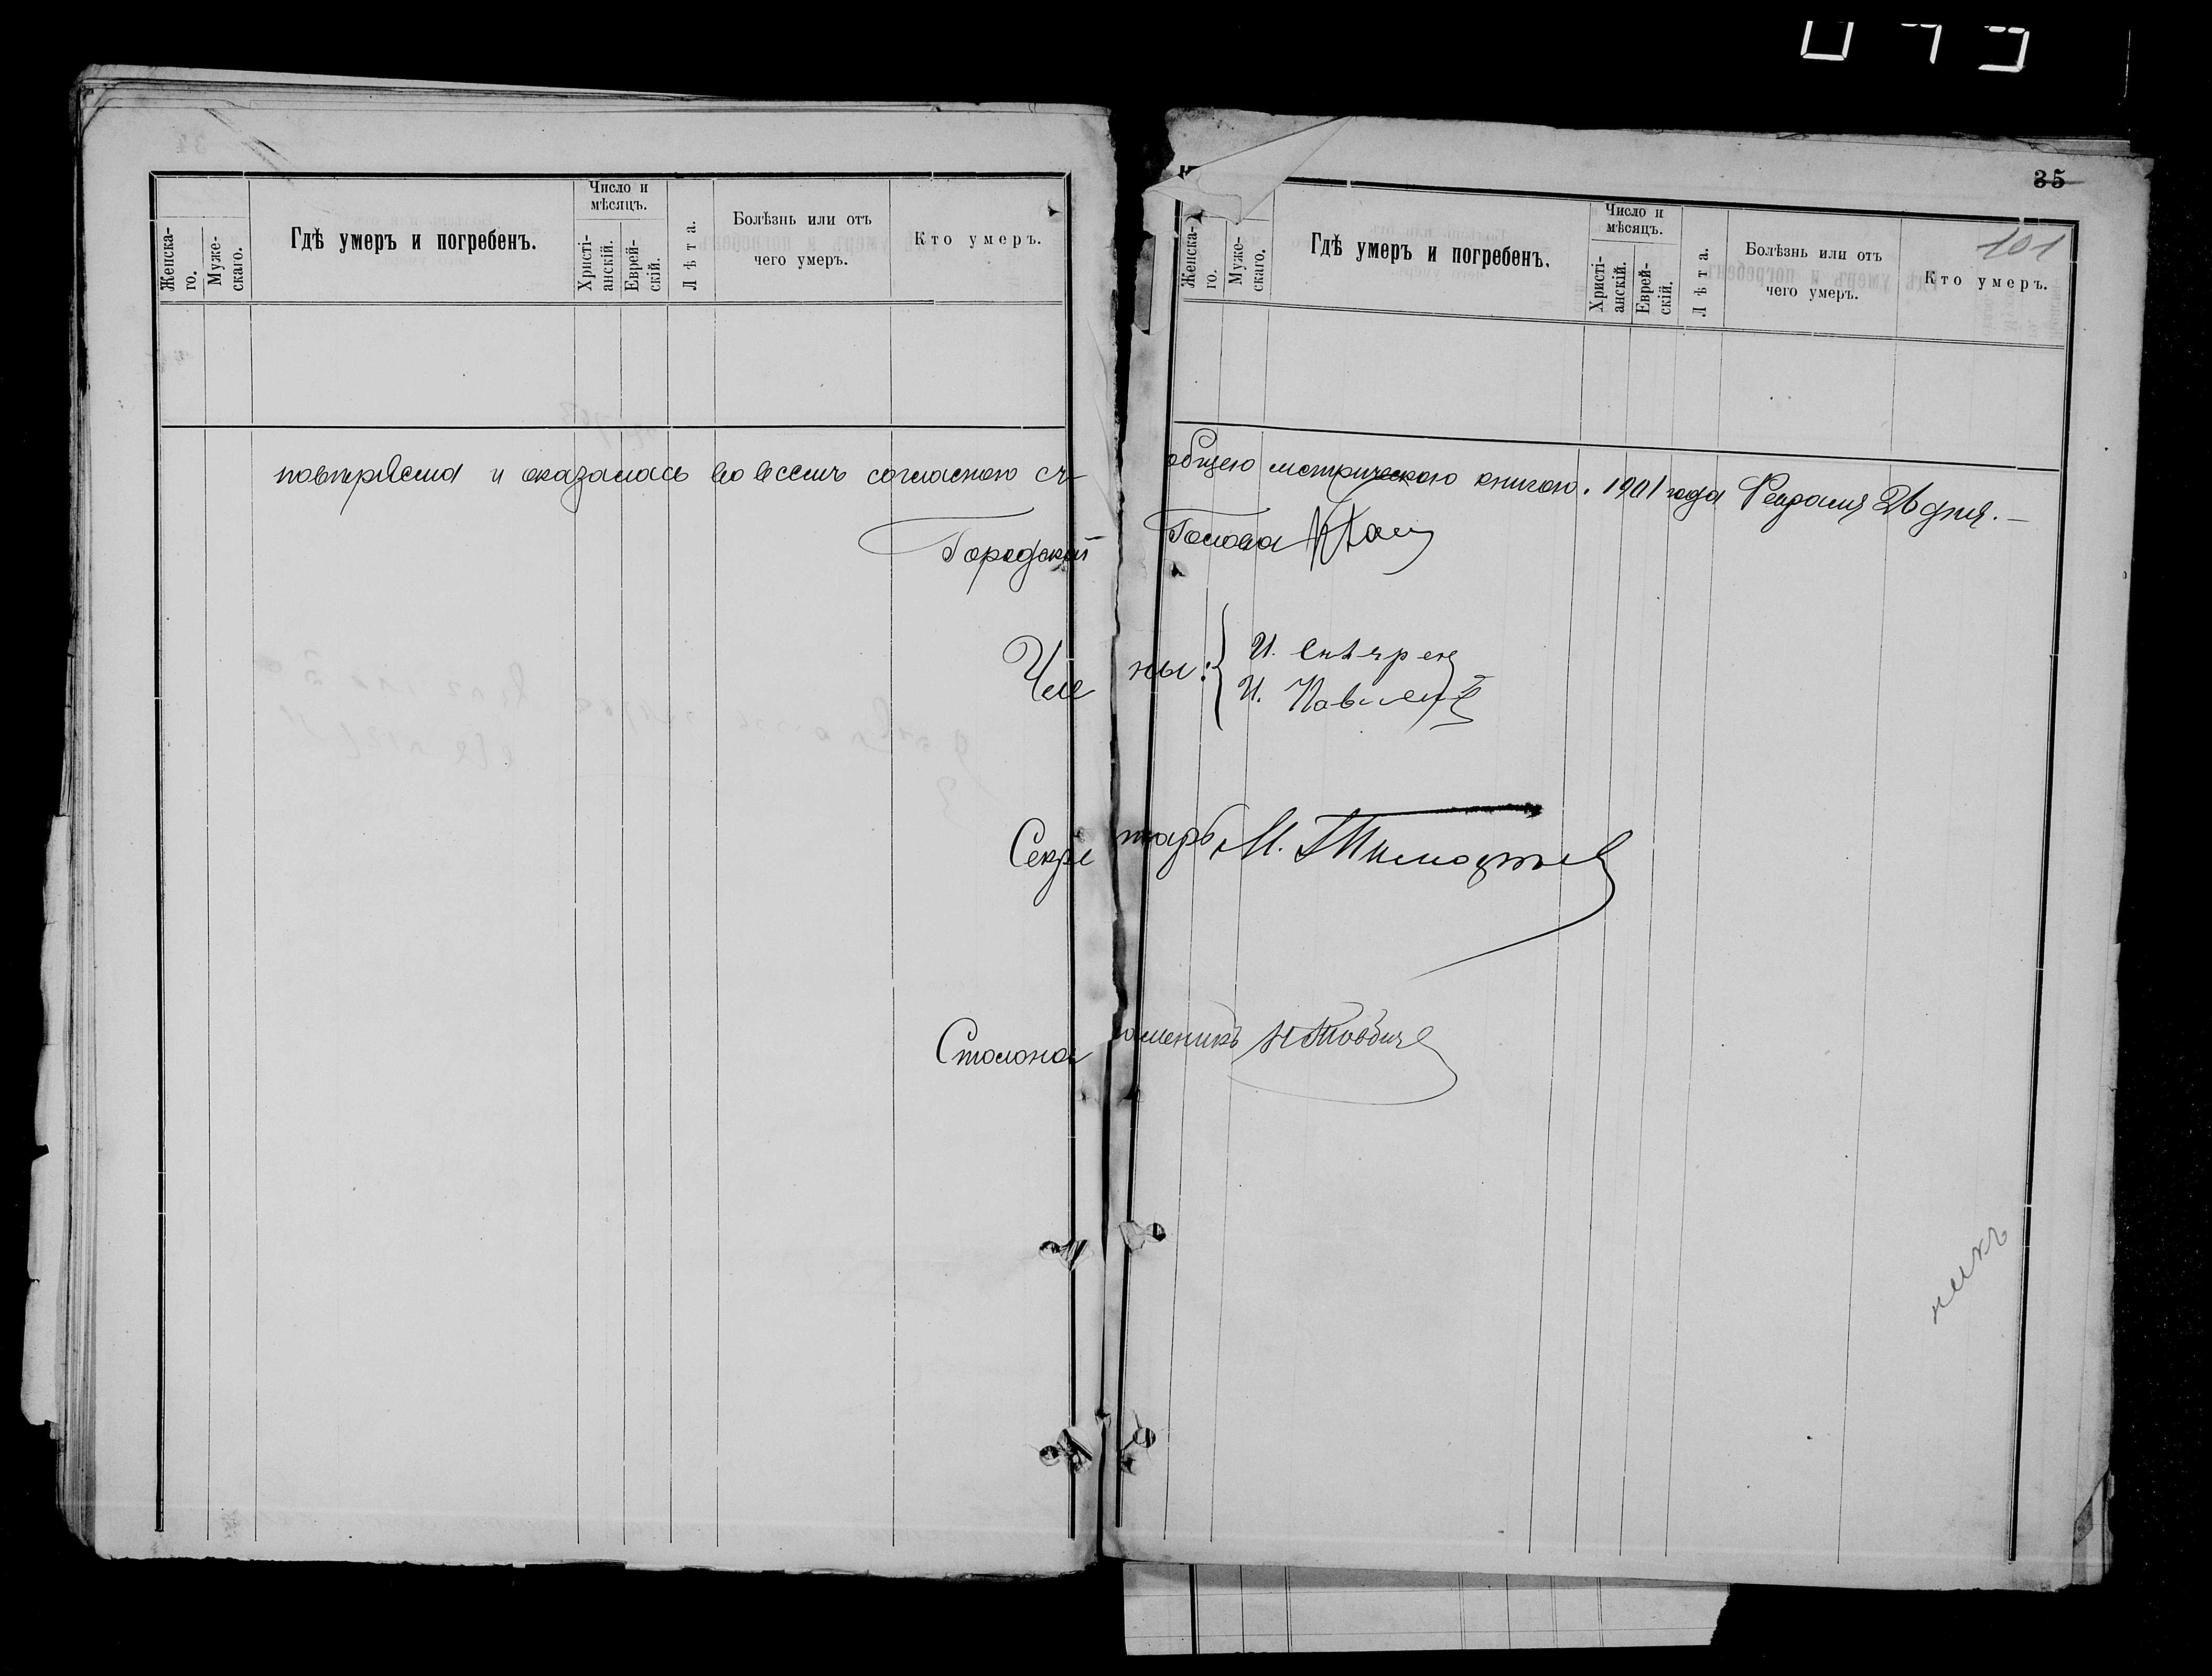 35
101
Женска-
го.
Муже-
скаго.
Гдѣ умеръ и погребенъ.
Число и
мѣсяцъ.
Христі-
анскій.
Еврей-
скій.
Лѣта.
Болѣзнь или отъ
чего умеръ.
Кто умеръ.
Женска-
го.
Муже-
скаго.
Гдѣ умеръ и погребенъ.
Число и
мѣсяцъ.
Христі-
анскій.
Еврей-
скій.
Лѣта.
Болѣзнь или отъ
чего умеръ.
Кто умеръ.
и оказалась во всемъ согласною съ общею метрическою книгою. 1901 года Февраля 26 дня.
Городской Голова
Члены:
И.
И.
Секретарь М. Тимофѣев
Столоначальникъ